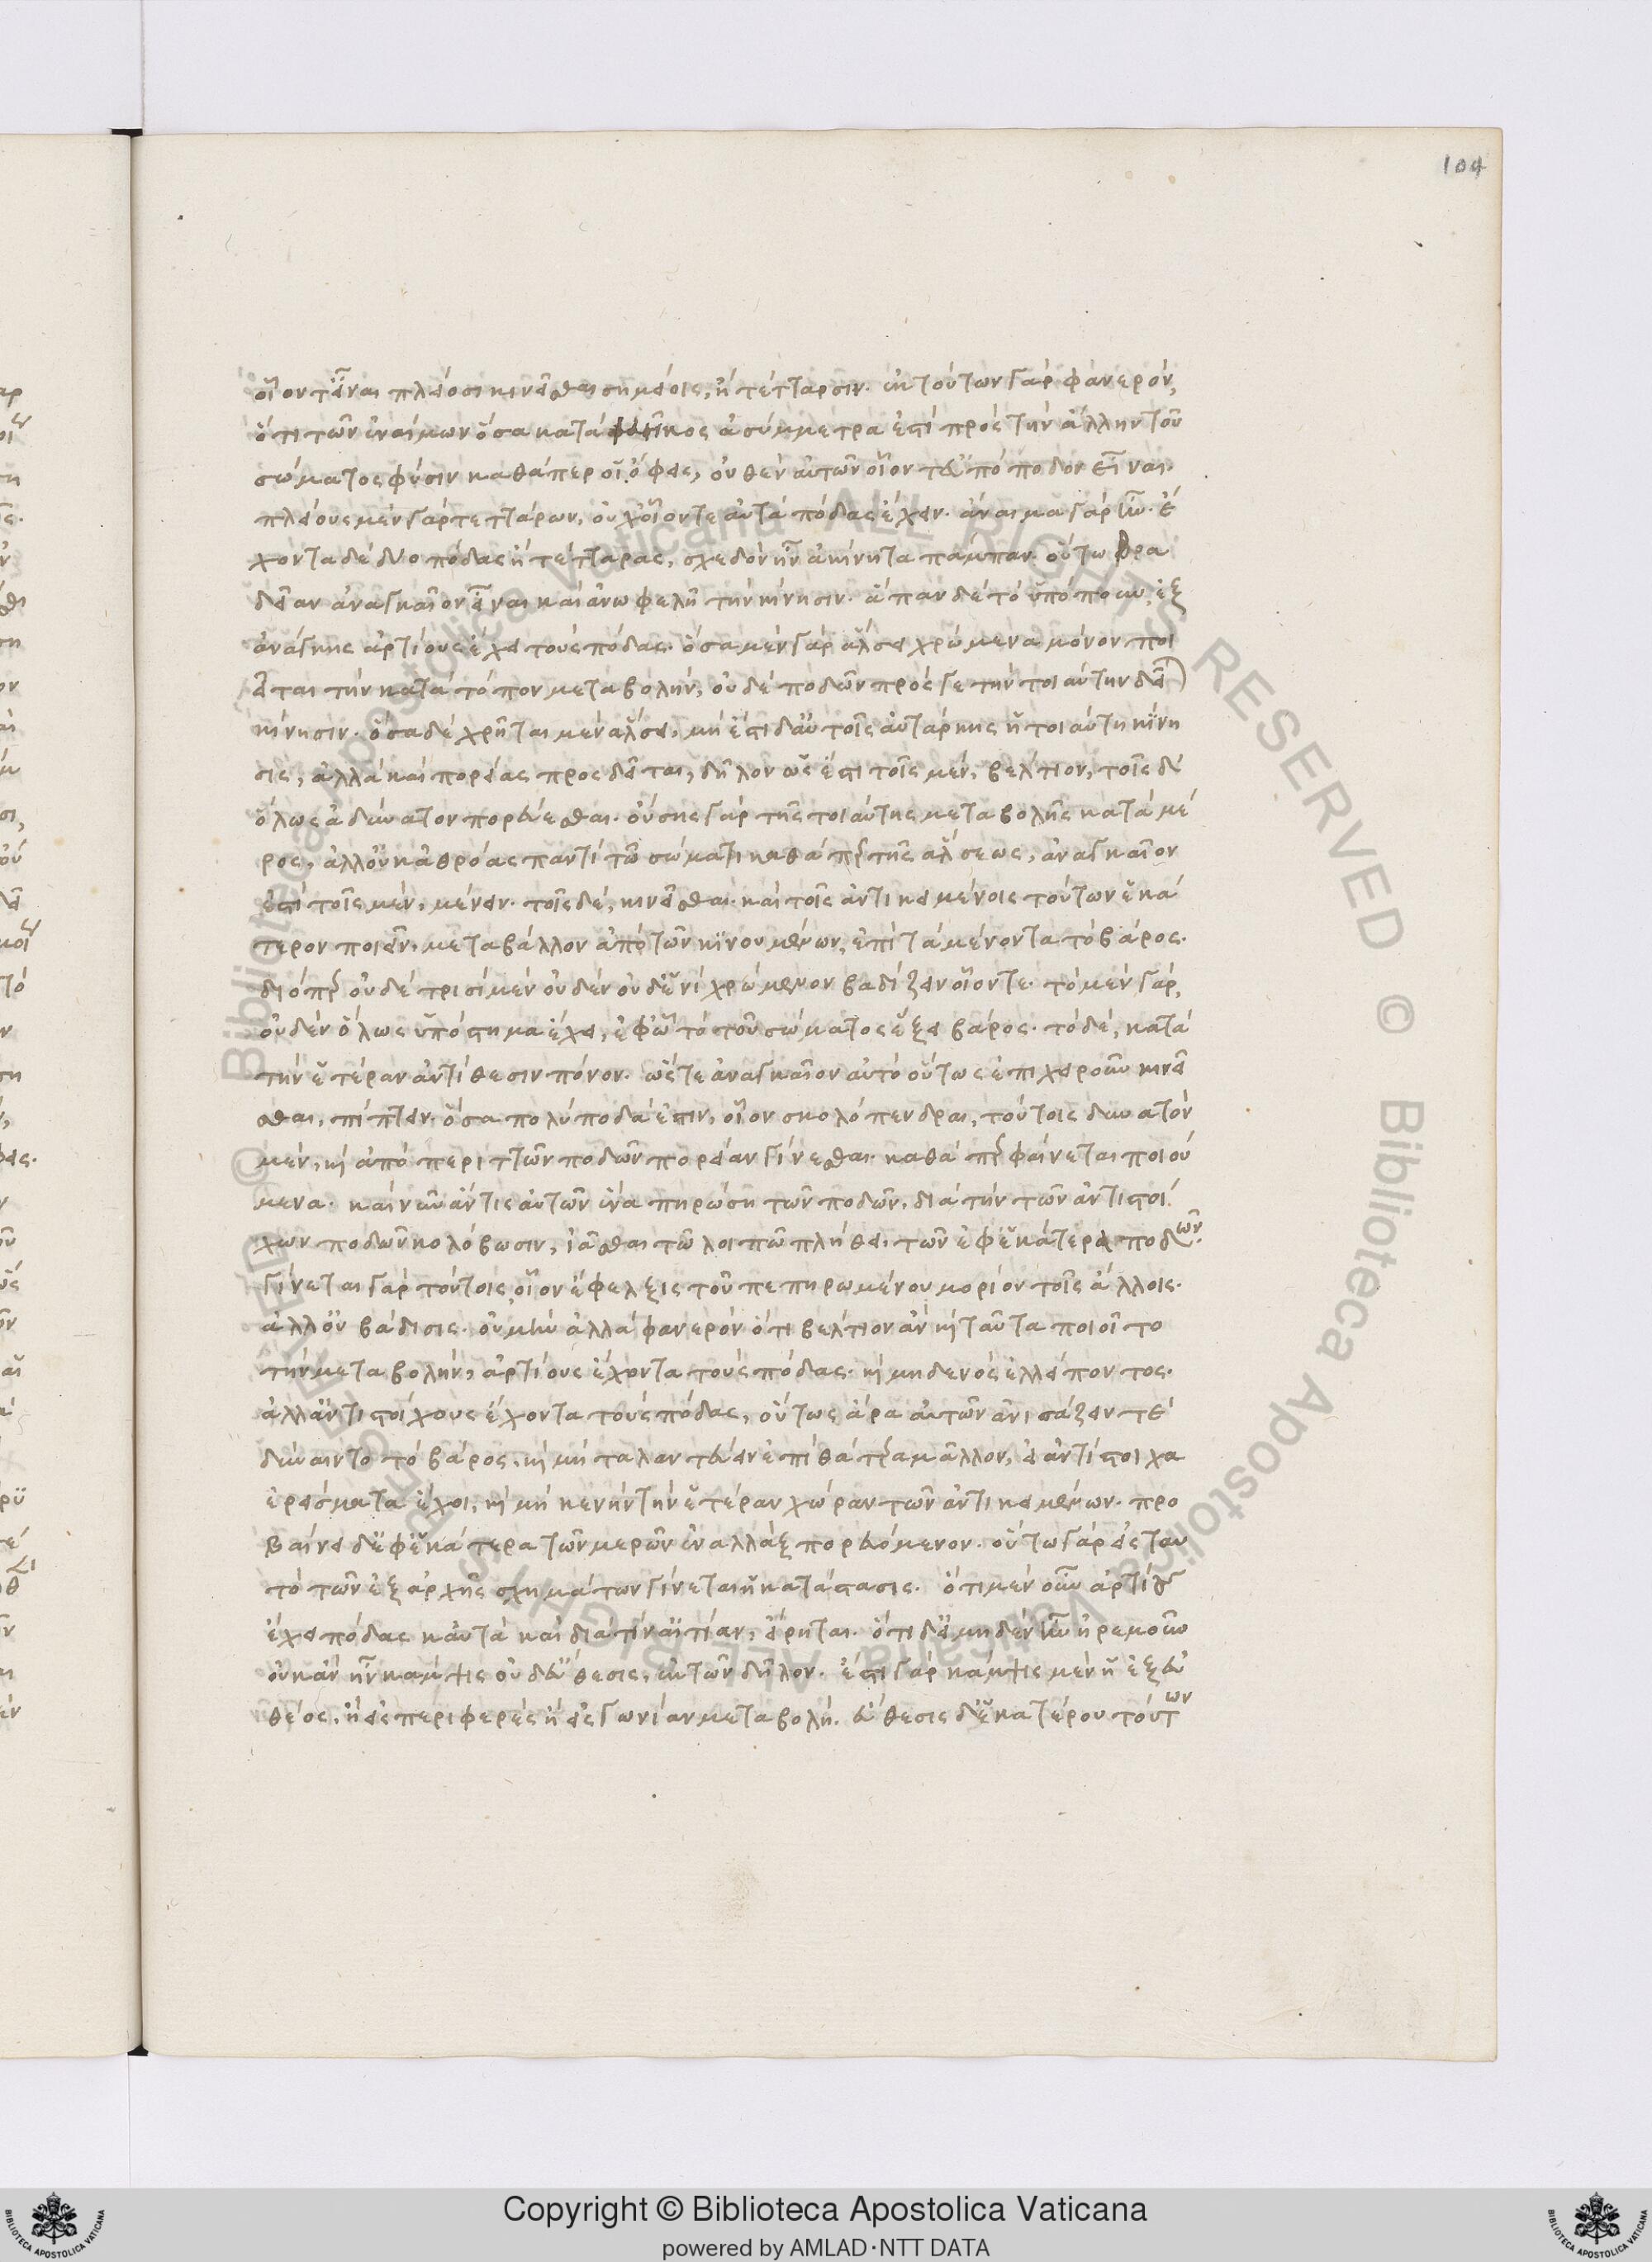 104
οἷόν τ' εἶναι πλείοσι κινεῖσθαι σημείοις, ἢ τέτταρσιν. ἐκ τούτων γὰρ φανερόν,
ὅτι τῶν ἐναίμων ὅσα κατὰ μῆκος ἀσύμμετρά ἐστι πρὸς τὴν ἄλλην τοῦ
σώματος φύσιν καθάπερ οἱ ὄφεις, οὐθὲν αὐτῶν οἷόν τ' ὑπόπουν εἶναι.
πλείους μὲν γὰρ τεττάρων, οὐχ οἷόν τε αὐτὰ πόδας ἔχειν. ἄναιμα γὰρ ἦν. ἔ
χοντα δὲ δύο πόδας ἢ τέτταρας, σχεδὸν ἦν ἀκίνητα πάμπαν. οὕτω βρα
δεῖαν ἀναγκαῖον εἶναι καὶ ἀνωφελῆ τὴν κίνησιν. ἅπαν δὲ τὸ ὑπόπουν, ἐξ
ἀνάγκης ἀρτίους ἔχει τοὺς πόδας. ὅσα μὲν γὰρ ἅλσει χρώμενα μόνον ποι
εῖται τὴν κατὰ τόπον μεταβολήν, οὐδὲ ποδῶν πρός γε τὴν τοιαύτην δεῖ
κίνησιν. ὅσα δὲ χρῆται μὲν ἅλσει, μή ἐστι δ' αὐτοῖς αὐτάρκης ἡ τοιαύτη κίνη
σις, ἀλλὰ καὶ πορείας προσδεῖται, δῆλον ὡς ἔστι τοῖς μὲν, βέλτιον, τοῖς δὲ
ὅλως ἀδύνατον πορεύεσθαι. οὔσης γὰρ τῆς τοιαύτης μεταβολῆς κατὰ μέ
ρος, ἀλλ' οὐκ ἀθρόας παντὶ τῷ σώματι καθάπερ τῆς ἅλσεως, ἀναγκαῖον
ἐστὶ τοῖς μὲν, μένειν. τοῖς δὲ, κινεῖσθαι. καὶ τοῖς ἀντικειμένοις τούτων ἑκά
τερον ποιεῖν, μεταβάλλον ἀπὸ τῶν κινουμένων, ἐπὶ τὰ μένοντα τὸ βάρος.
διόπερ οὐδὲ τρισὶ μὲν οὐδὲν οὐδ' ἑνὶ χρώμενον βαδίζειν οἷόν τε. τὸ μὲν γὰρ,
οὐδὲν ὅλως ὑπόστημα ἔχει, ἐφ' ᾧ τὸ τοῦ σώματος ἕξει βάρος. τὸ δὲ, κατὰ
τὴν ἑτέραν ἀντίθεσιν πόνον. ὥστε ἀναγκαῖον αὐτὸ οὕτως ἐπιχειροῦν κινεῖ
σθαι, πίπτειν. ὅσα πολύποδά ἐστιν, οἷον σκολόπενδραι, τούτοις δυνατὸν
μὲν, καὶ ἀπὸ περιττῶν ποδῶν πορείαν γίνεσθαι. καθάπερ φαίνεται ποιού
μενα. καὶ νῦν ἄν τις αὐτῶν ἕνα πηρώσῃ τῶν ποδῶν, διὰ τὴν τῶν ἀντιστοί
χων ποδῶν κολόβωσιν, ἰᾶσθαι τῷ λοιπῷ πλήθει τῶν ἐφ' ἑκάτερα ποδῶν.
γίνεται γὰρ τούτοις, οἷον ἔφελξις τοῦ πεπηρωμένου μορίου τοῖς ἄλλοις.
ἀλλ' οὐ βάδισις. οὐ μὴν ἀλλὰ φανερὸν ὅτι βέλτιον ἂν καὶ ταῦτα ποιοῖτο
τὴν μεταβολήν, ἀρτίους ἔχοντα τοὺς πόδας. καὶ μηδενὸς ἐλλείποντος.
ἀλλ' ἀντιστοίχους ἔχοντα τοὺς πόδας, οὕτως ἄρα αὐτῶν ἀνισάζειν τε
δύναιντο τὸ βάρος. καὶ μὴ ταλαντεύειν ἐπὶ θάτερα μᾶλλον, εἰ ἀντίστοιχα
ἐρείσματα ἔχοι, καὶ μὴ κενὴν τὴν ἑτέραν χώραν τῶν ἀντικειμένων. προ
βαίνει δ' ἐφ' ἑκάτερα τῶν μερῶν ἐναλλὰξ πορευόμενον. οὕτω γὰρ εἰς ταυ
τὸ τῶν ἐξ ἀρχῆς σχημάτων γίνεται ἡ κατάστασις. ὅτι μὲν οὖν ἀρτίους
ἔχει πόδας κ' αὐτὰ καὶ διὰ τίν' αἰτίαν, εἴρηται. ὅτι δ' εἰ μηδὲν ἦν ἠρεμοῦν
οὐκ ἂν ἦν κάμψις οὐδ' εὔθεσις, ἐκ τῶν δῆλον. ἔστι γὰρ κάμψις μὲν ἡ ἐξ εὐ
θέος, ἢ εἰς περιφερὲς ἢ εἰς γωνίαν μεταβολή. εὔθεσις δ' ἡ ἑκατέρου τούτων
Copyright © Biblioteca Apostolica Vaticana
powered by AMLAD·NTT DATA